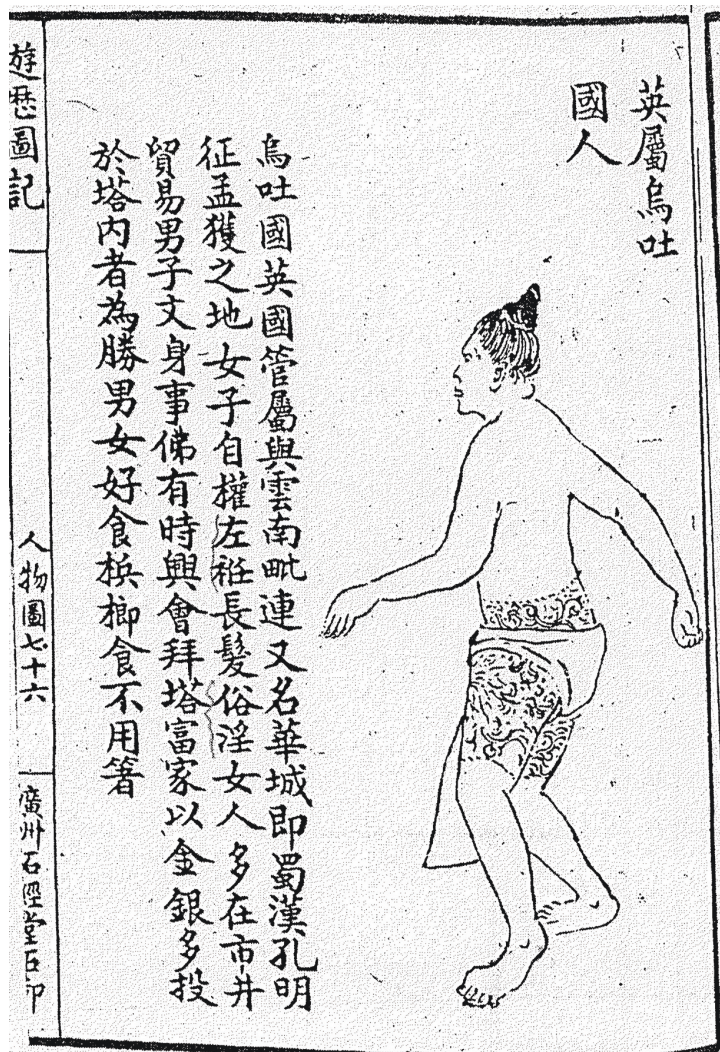 英屬烏吐
國人
烏吐國英國管屬與雲南毗連又名華城即蜀漢孔明
征孟獲之地女子自權左袵長髮俗淫女人多在市井
貿易男子文身事佛有時興會拜塔富家以金銀多投
於塔內者為勝男女好食梹榔食不用箸
遊歷圖記
人物圖七十六
廣州石經堂石印